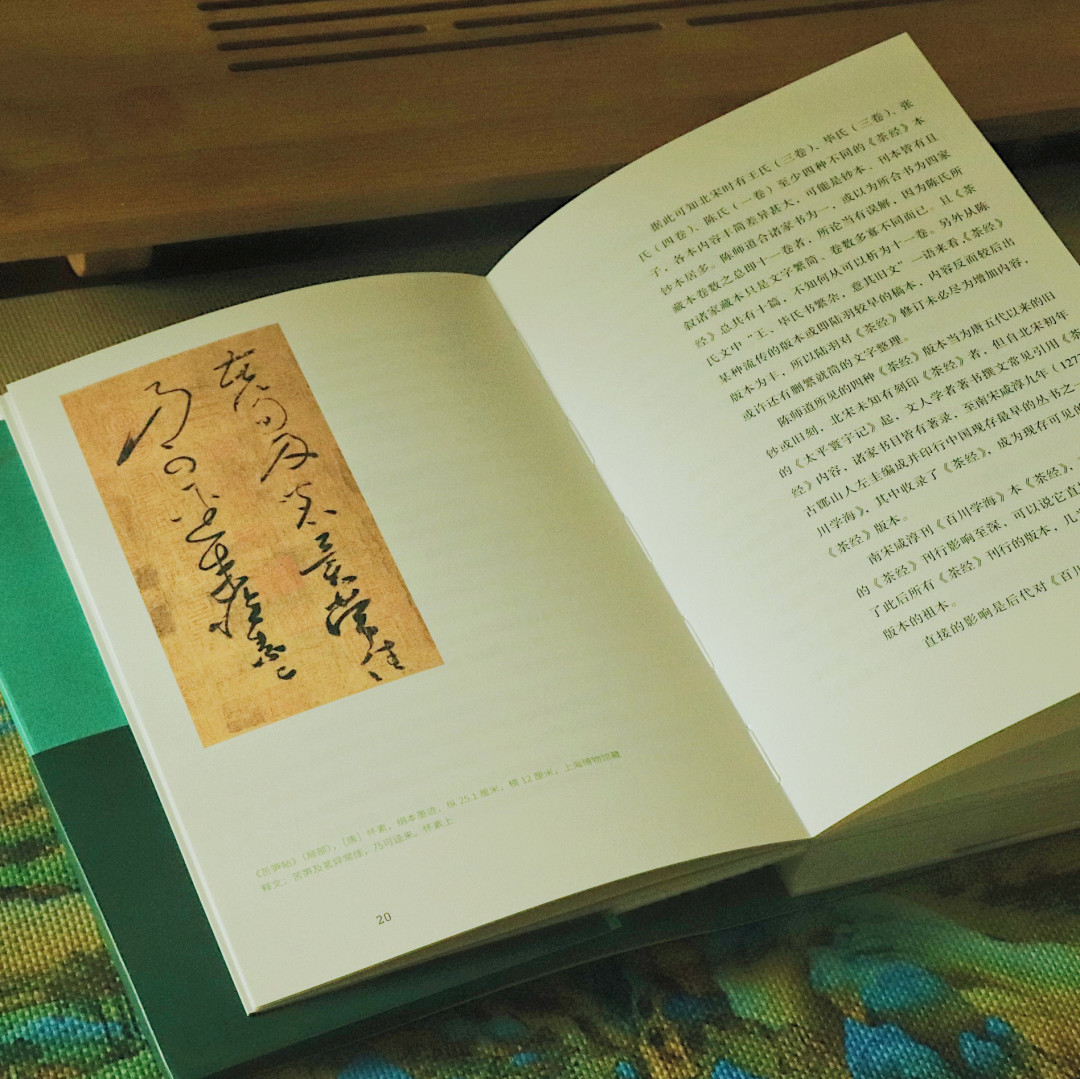 苦笋及茗異常佳
乃可逕来懷素上
《苦笋帖》(局部),[唐]怀素,绢本墨迹,纵25.1厘米,横12厘米,上海博物馆藏
释文:苦笋及茗异常佳,乃可迳来。怀素上
20
据此可知北宋时有王氏(三卷)、毕氏(三卷)、张
氏(四卷)、陈氏(一卷)至少四种不同的《茶经》本
子,各本内容丰简差异甚大,可能是钞本、刊本皆有且
钞本居多。陈师道合诸家书为一,或以为所合书为四家
藏本卷数之总即十一卷者,所论当有误解,因为陈氏所
叙诸家藏本只是文字繁简、卷数多寡不同而已。且《茶
经》总共有十篇,不知何从可以析为十一卷。另外从陈
氏文中“王、毕氏书繁杂,意其旧文”一语来看,《茶经》
某种流传的版本或即陆羽较早的稿本,内容反而较后出
版本为丰,所以陆羽对《茶经》修订未必尽为增加内容,
或许还有删繁就简的文字整理。
陈师道所见的四种《茶经》版本当为唐五代以来的旧
钞或旧刻,北宋未知有刻印《茶经》者,但自北宋初年
的《太平寰宇记》起,文人学者著书撰文常见引用《茶
经》内容,诸家书目皆有著录,至南宋咸淳九年(1273
古鄮山人左圭编成并印行中国现存最早的丛书之一
川学海》,其中收录了《茶经》,成为现存可见的
《茶经》版本。
南宋咸淳刊《百川学海》本《茶经》,
的《茶经》刊行影响至深,可以说它直
了此后所有《茶经》刊行的版本,几
版本的祖本。
直接的影响是后代对《百川